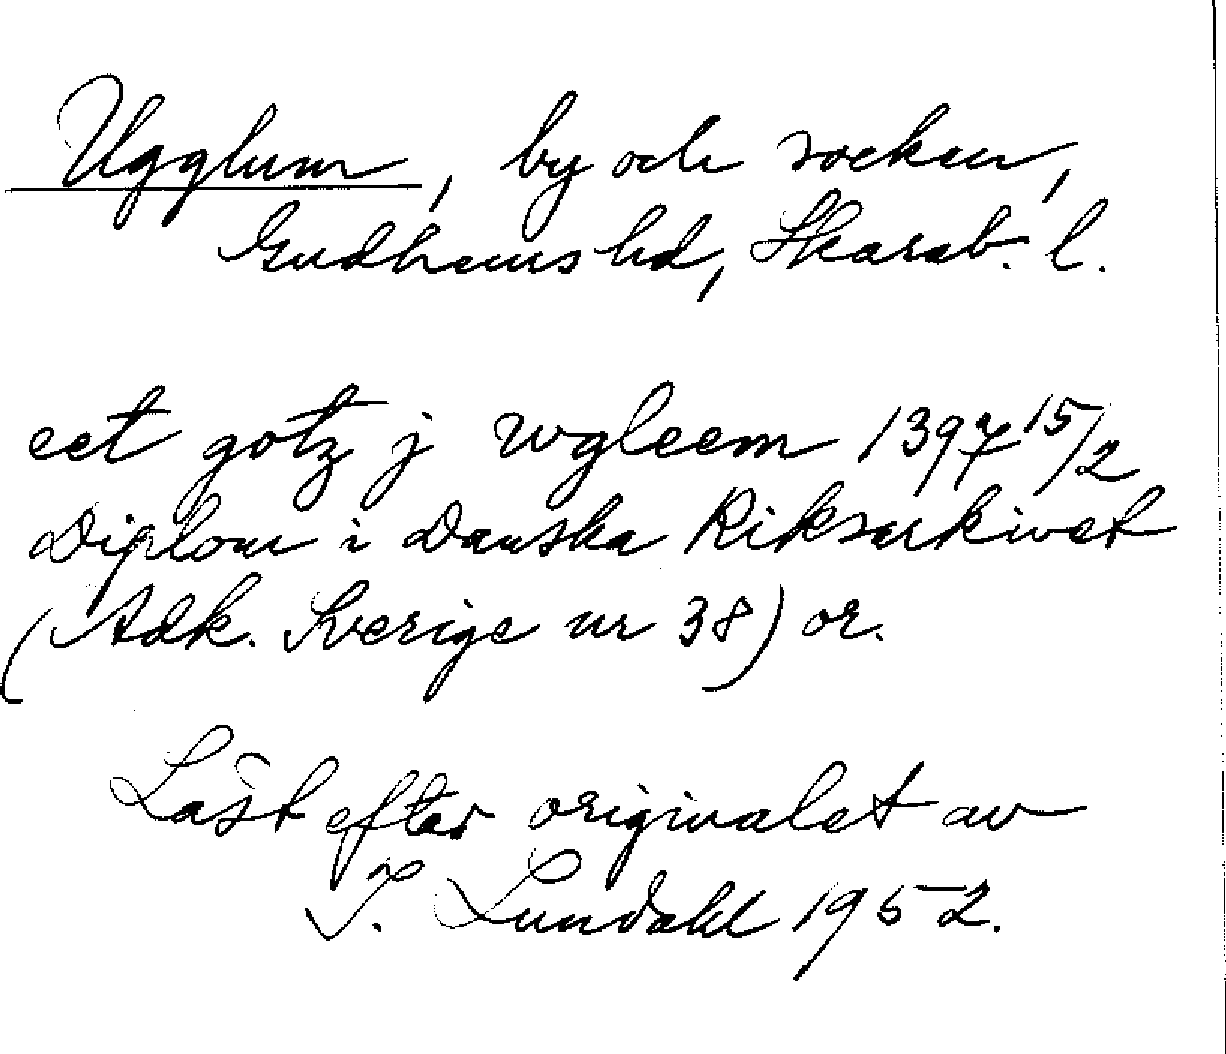 Ugglum, by och socken,
Gudhems hd, Skarab. l.
eet gotz j wgleem 1397 15/2
Diplom i Danska Riksarkivet
(Adk. Sverige nr 38) or.
Läst efter originalet av
I. Lundahl 1952.